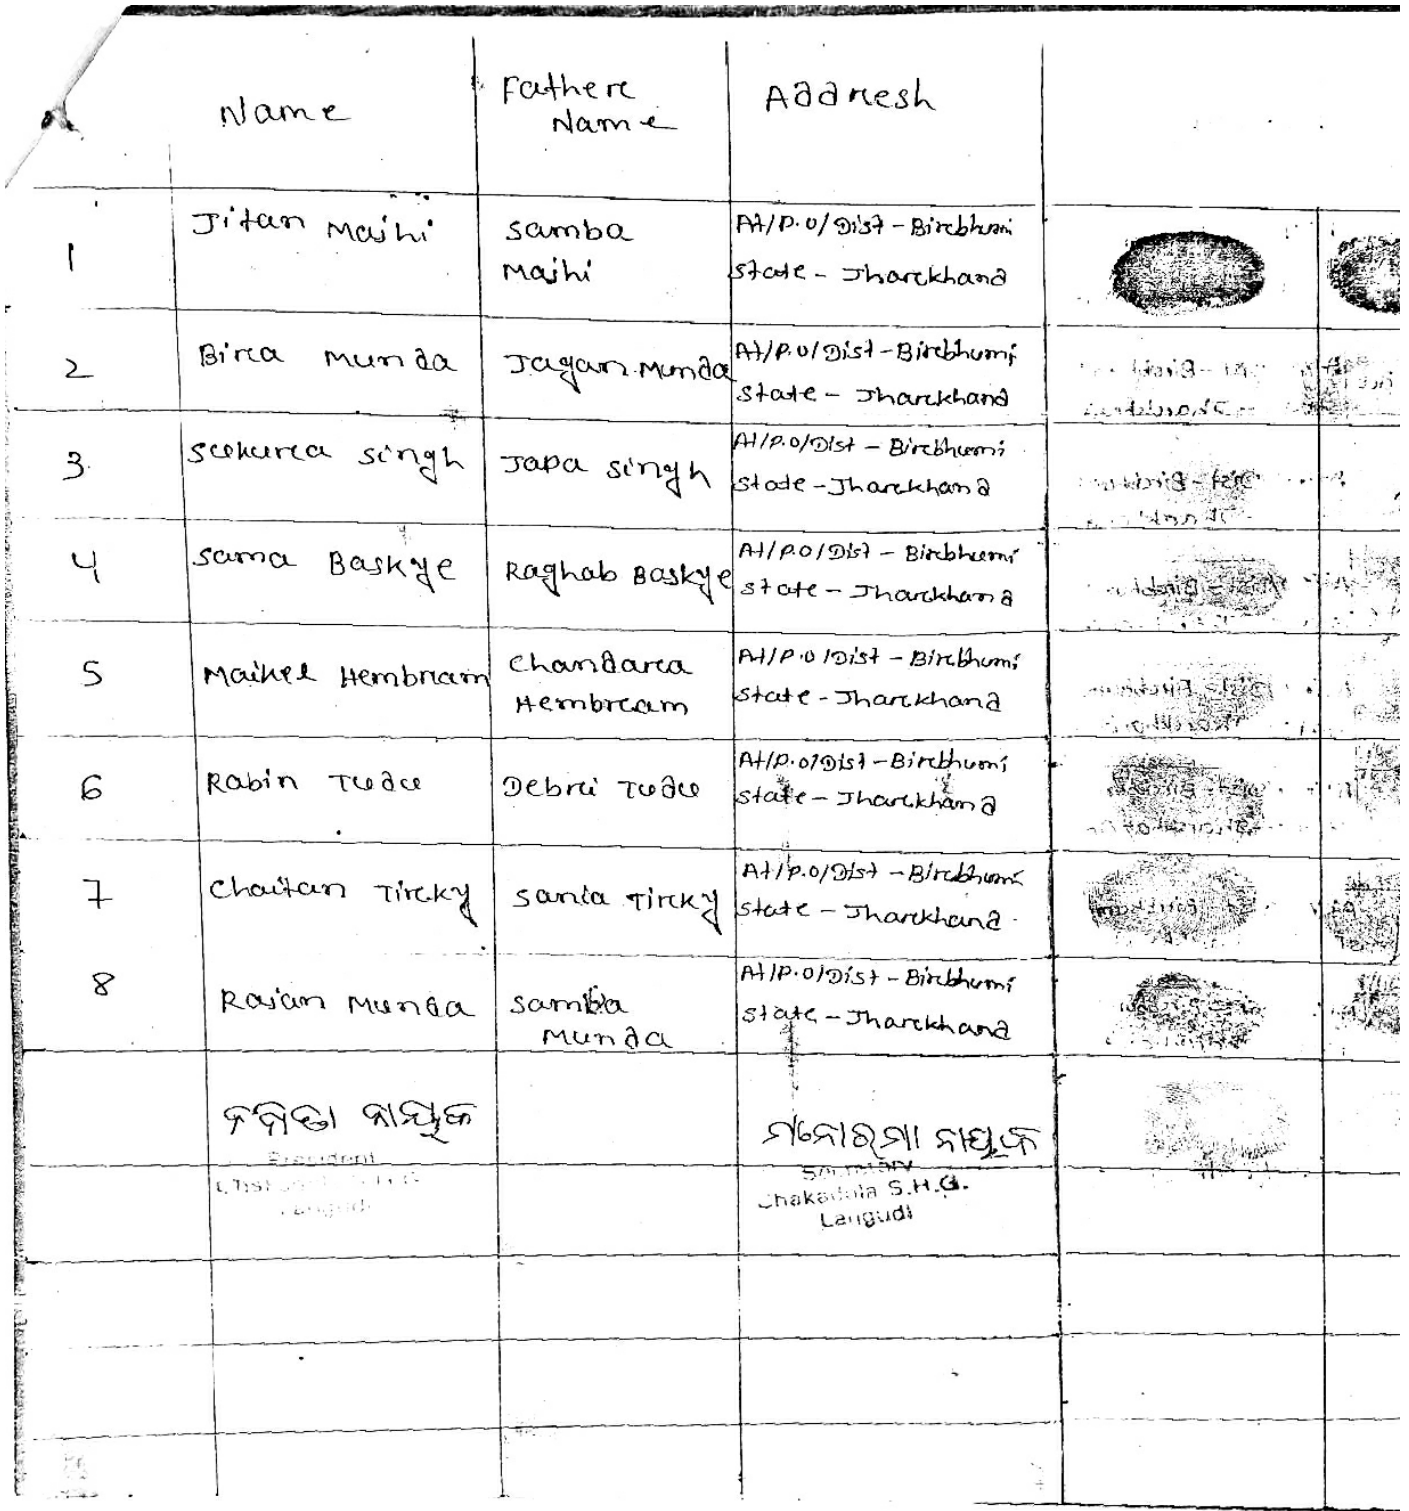 Name Fathere Name Addresh
1 Jitan Majhi Samba Majhi At/P.O/Dist - Birebhumi State - Jharekhand
2 Birea Munda Jagan Munda At/P.O/Dist - Birebhumi State - Jharekhand
3 Sukurea Singh Japa Singh At/P.O/Dist - Birebhumi State - Jharekhand
4 Sama Baskye Raghab Baskye At/P.O/Dist - Birebhumi State - Jharekhand
5 Maikel Hembream Chandarea Hembream At/P.O/Dist - Birebhumi State - Jharekhand
6 Rabin Tudu Debrei Tudu At/P.O/Dist - Birebhumi State - Jharekhand
7 Chaitan Tireky Sania Tireky At/P.O/Dist - Birebhumi State - Jharekhand
8 Rajan Munda Samba Munda At/P.O/Dist - Birebhumi State - Jharekhand
ନବୀତା ନାୟକ ମନୋରମା ନାୟକ
President Secretary
Chakadola S.H.G.
Langudi Langudi